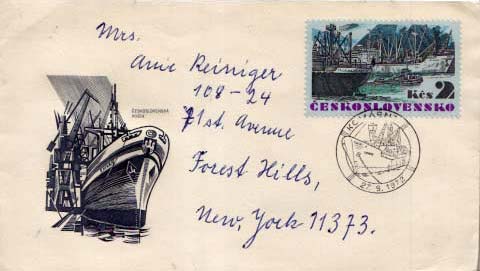 Mrs.
Anie Reiniger
108-24
71st. Avenue
Forest Hills,
New York 11373.
Kčs 2
ČESKOSLOVENSKO
ČESKOSLOVENSKÁ
27.9.1972